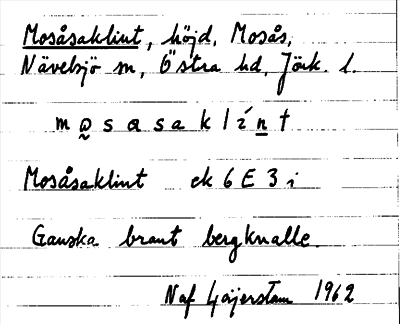 Mosåsaklint, höjd, Mosås,
Nävelsjö sn, Östra hd, Jönk. l.
m o̰ s a s a k l í n̲ t
Mosåsaklint ek 6 E 3 i
Ganska brant bergknalle.
Naf Gajerstam 1962